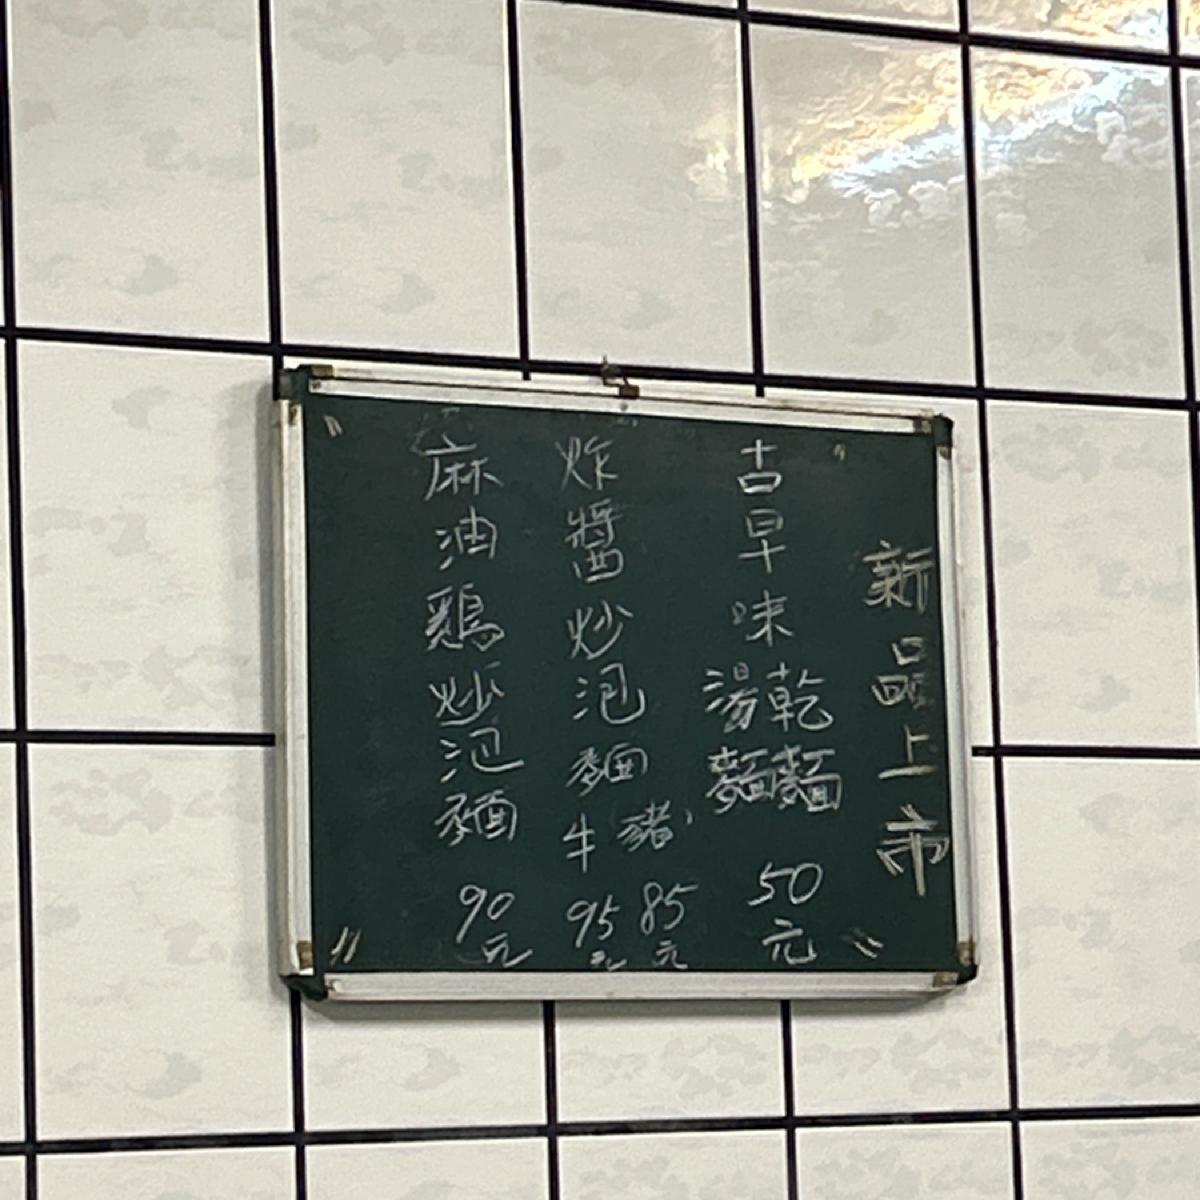 新品上市
古早味
乾麵
湯麵
50元
炸醬炒泡麵
豬
85元
牛
95元
麻油鷄炒泡麵
90元